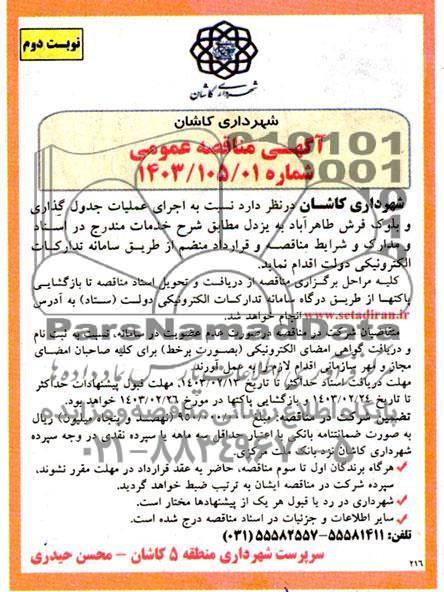 نوبت دوم
شهرداری کاشان
شهرداری کاشان
آگهی مناقصه عمومی
شماره ۱۴۰۳/۱۰۵/۰۱
شهرداری کاشان درنظر دارد نسبت به اجرای عملیات جدول گذاری
و بلوک فرش طاهرآباد به یزدل مطابق شرح خدمات مندرج در اسناد
و مدارک و شرایط مناقصه و قرارداد منضم از طریق سامانه تدارکات
الکترونیکی دولت اقدام نماید.
کلیه مراحل برگزاری مناقصه از دریافت و تحویل اسناد مناقصه تا بازگشایی
پاکتها از طریق درگاه سامانه تدارکات الکترونیکی دولت (ستاد) به آدرس
www.setadiran.ir انجام خواهد شد.
متقاضیان شرکت در مناقصه درصورت عدم عضویت در سامانه، نسبت به ثبت نام
و دریافت گواهی امضای الکترونیکی (بصورت برخط) برای کلیه صاحبان امضای
مجاز و مهر سازمانی اقدام لازم بعمل آورند.
مهلت دریافت اسناد حداکثر تا تاریخ ۱۴۰۳/۰۲/۱۳، مهلت قبول پیشنهادات حداکثر
تا تاریخ ۱۴۰۳/۰۲/۲۴ و بازگشایی پاکتها در مورخ ۱۴۰۳/۰۲/۲۶ خواهد بود.
تضمین شرکت در مناقصه: مبلغ ۹۵۰/۰۰۰/۰۰۰ (نهصد و پنجاه میلیون) ریال
به صورت ضمانتنامه بانکی با اعتبار حداقل سه ماهه یا سپرده نقدی در وجه سپرده
شهرداری کاشان نزد بانک ملت مرکزی.
هرگاه برندگان اول تا سوم مناقصه، حاضر به عقد قرارداد در مهلت مقرر نشوند،
سپرده شرکت در مناقصه ایشان به ترتیب ضبط خواهد گردید.
شهرداری در رد یا قبول هر یک از پیشنهادها مختار است.
سایر اطلاعات و جزئیات در اسناد مناقصه درج شده است.
تلفن: ۵۵۵۸۱۴۱۱-۵۵۵۸۲۵۵۷ (۰۳۱)
سرپرست شهرداری منطقه ۵ کاشان - محسن حیدری
۲۱۶